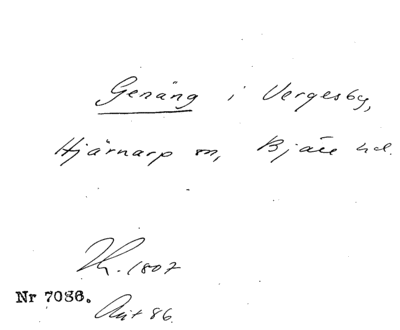 Genäng i Vergesby,
Hjärnarp sn, Bjäre hd.
1807
Nr 7086.
86